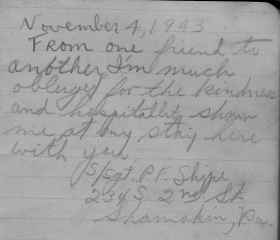 November 4, 1943
From one friend to
another I'm much
oblidge for the kindness
and hospitality shown
me at my stay here
with you
S/Sgt. P.P.
234 S. 2nd St.
Shamokin, Pa.